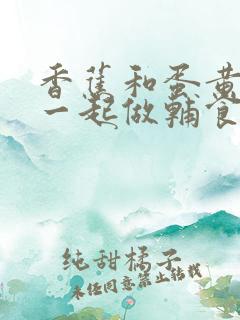 香蕉和蛋黄
一起做辅食
纯甜橘子
未经同意禁止转载